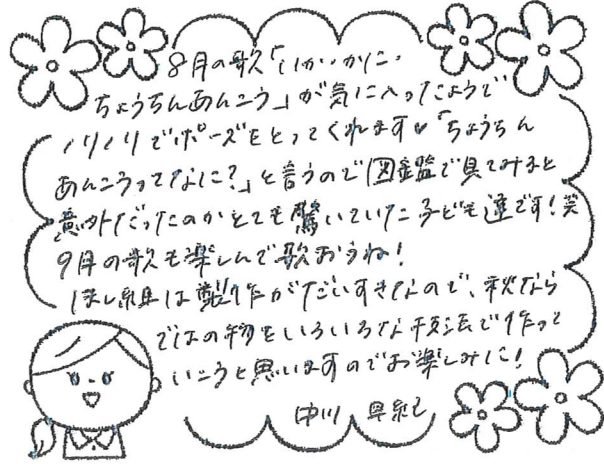 8月の歌「いか・かに・
ちょうちんあんこう」が気に入ったようで
ノリノリでポーズをとってくれます♥「ちょうちん
あんこうってなに?」と言うので図鑑で見てみると
意外だったのかとても驚いていた子ども達です!笑
9月の歌も楽しんで歌おうね!
ほし組は製作がだいすきなので、秋なら
ではの物をいろいろな技法で作って
いこうと思いますのでお楽しみに!
中川 早紀